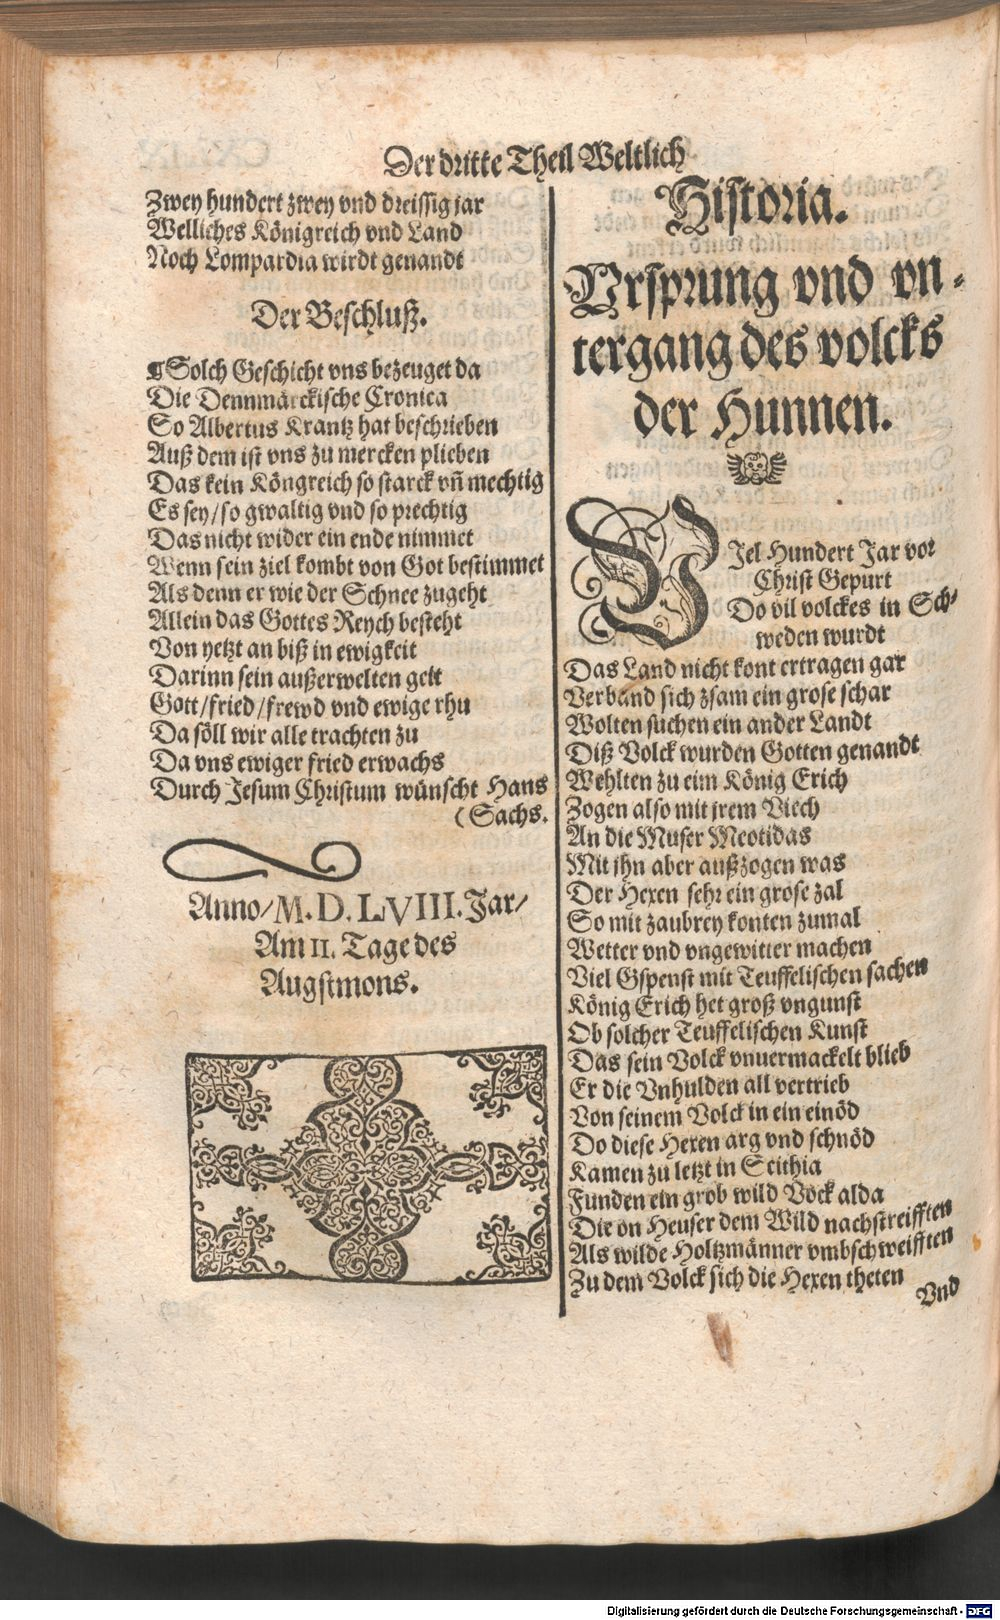 Der dritte Theil Weltlich
Zwey hundert zwey vnd dreissig jar
Welliches Königreich vnd Land
Noch Lompardia wirdt genandt
Der Beschluß.
¶Solch Geschicht vns bezeuget da
Die Dennmärckische Cronica
So Albertus Krantz hat beschrieben
Auß dem ist vns zu mercken plieben
Das kein Köngreich so starck vñ mechtig
Es sey/so gwaltig vnd so prechtig
Das nicht wider ein ende nimmet
Wenn sein ziel kombt von Got bestimmet
Als denn er wie der Schnee zugeht
Allein das Gottes Reych besteht
Von yetzt an biß in ewigkeit
Darinn sein außerwelten geit
Gott/fried/frewd vnd ewige rhu
Da söll wir alle trachten zu
Da vns ewiger fried erwachs
Durch Jesum Christum wünscht Hans
(Sachs.
Anno/M.D.LVIII.Jar/
Am II. Tage des
Augstmons.
Historia.
Vrsprung vnd vn-
tergang des volcks
der Hunnen.
VJel Hundert Jar vor
Christ Gepurt
Do vil volckes in Sch-
weden wurdt
Das Land nicht kont ertragen gar
Verband sich zsam ein grose schar
Wolten suchen ein ander Landt
Diß Volck wurden Gotten genandt
Wehlten zu eim König Erich
Zogen also mit jrem Viech
An die Muser Meotidas
Mit jhn aber außzogen was
Der Hexen sehr ein grose zal
So mit zaubrey konten zumal
Wetter vnd vngewitter machen
Viel Gspenst mit Teuffelischen sachen
König Erich het groß vngunst
Ob solcher Teuffelischen Kunst
Das sein Volck vnuermackelt blieb
Er die Vnhulden all vertrieb
Von seinem Volck in ein einöd
Do diese Hexen arg vnd schnöd
Kamen zu letzt in Scithia
Funden ein grob wild Vock alda
Die on Heuser dem Wild nachstreifften
Als wilde Holtzmänner vmbschweifften
Zu dem Volck sich die Hexen theten
Vnd
Digitalisierung gefördert durch die Deutsche Forschungsgemeinschaft - DFG